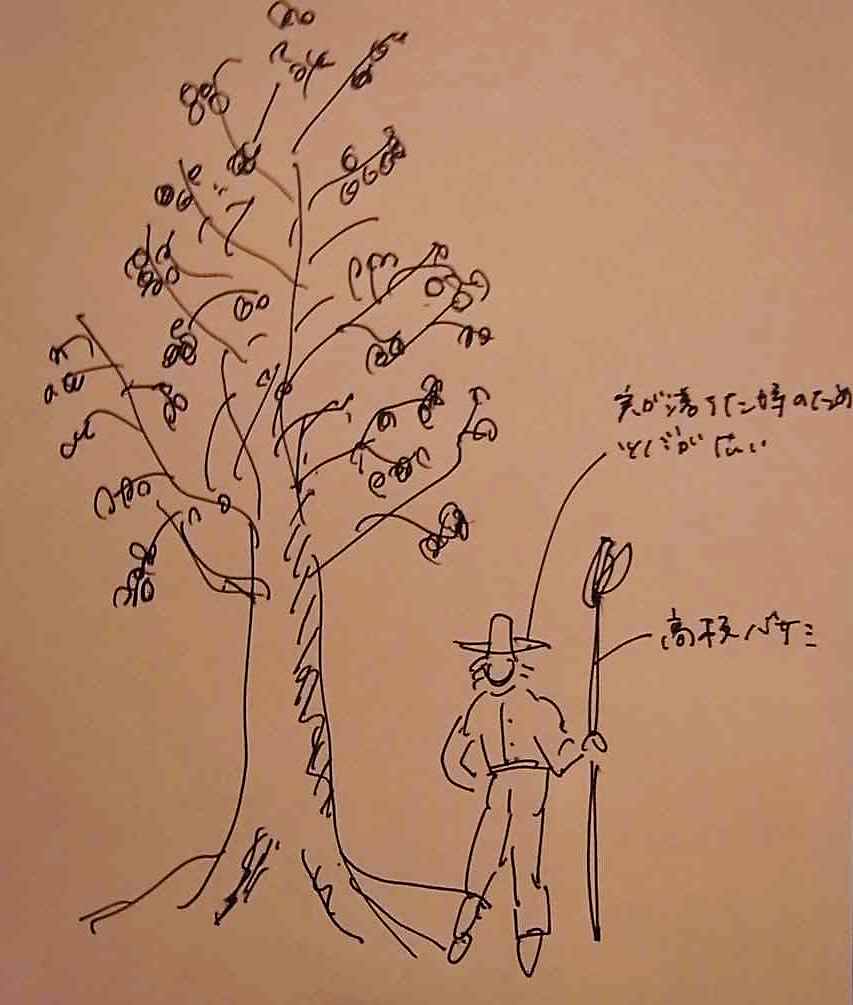 実が落ちた時のため
つばが広い
高枝バサミ